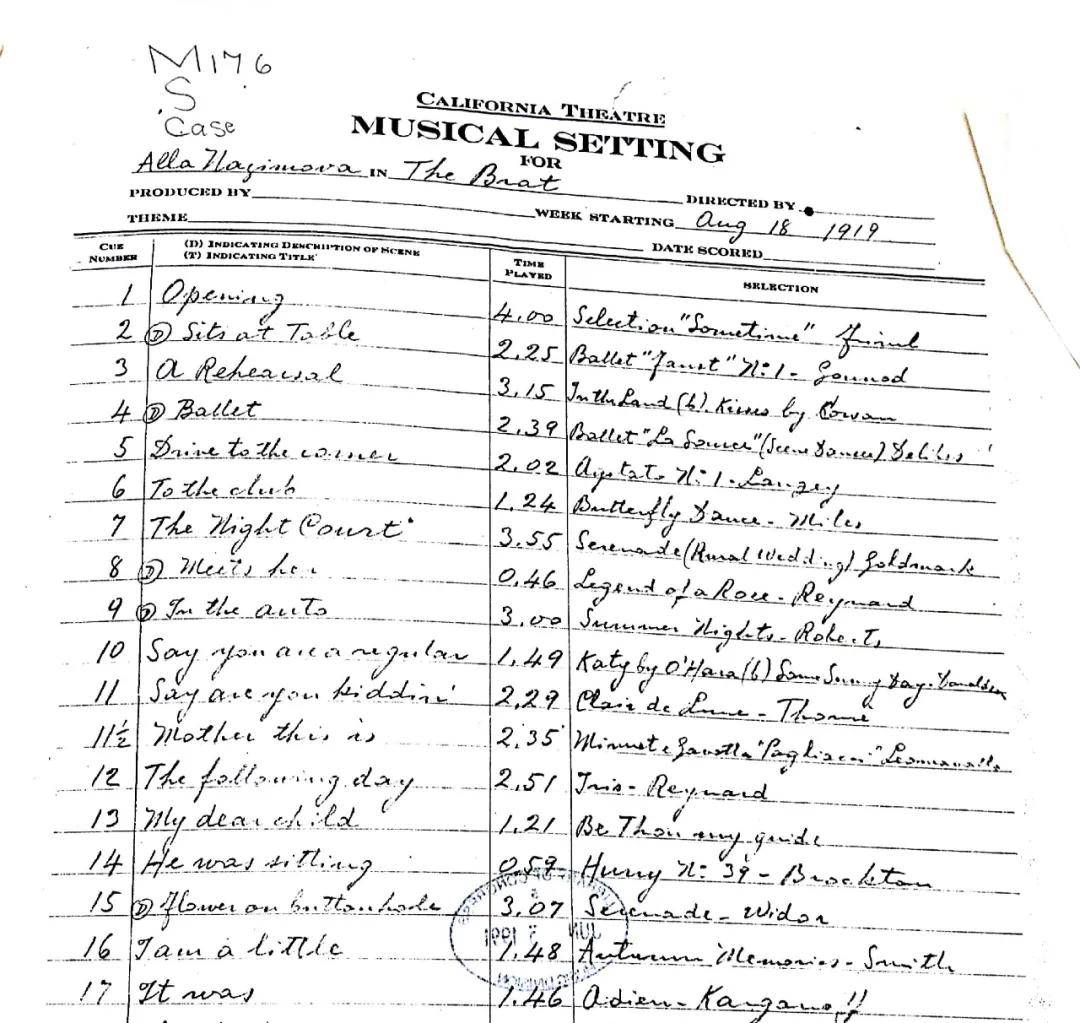 M176
S
Case
CALIFORNIA THEATRE
MUSICAL SETTING
FOR
Alla Nazimova IN The Brat
PRODUCED BY DIRECTED BY
THEME WEEK STARTING Aug 18 1919
DATE SCORED
CUE NUMBER (D) INDICATING DESCRIPTION OF SCENE (T) INDICATING TITLE TIME PLAYED SELECTION
1 Opening 4.00 Selection "Sometime" Friml
2 (D) Sits at Table 2.25 Ballet "Faust" No 1 - Gounod
3 A Rehearsal 3.15 In the Land (b). Kisses by Cowan
4 (D) Ballet 2.39 Ballet "La Source" (Scene Dance) Delibes
5 Drive to the corner 2.02 Agitato No 1 - Langey
6 To the club 1.24 Butterfly Dance - Miles
7 The Night Court 3.55 Serenade (Rural Wedding) Goldmark
8 (D) Meets her 0.46 Legend of a Rose - Reynard
9 (D) In the auto 3.00 Summer Nights - Roberts
10 Say you are a regular 1.49 Katy by O'Hara (b) Some Sunny Day. Donaldson
11 Say are you kiddin' 2.29 Clair de Lune - Thomé
11½ Mother this is 2.35 Minuet e Gavotta "Pagliacci" Leoncavallo
12 The following day 2.51 Iris - Reynard
13 My dear child 1.21 Be Thou my guide
14 He was sitting 0.59 Hurry No 39 - Brockton
15 (D) Flower on buttonhole 3.07 Serenade - Widor
16 I am a little 1.48 Autumn Memories - Smith
17 It was 1.46 Adieu - Karganoff